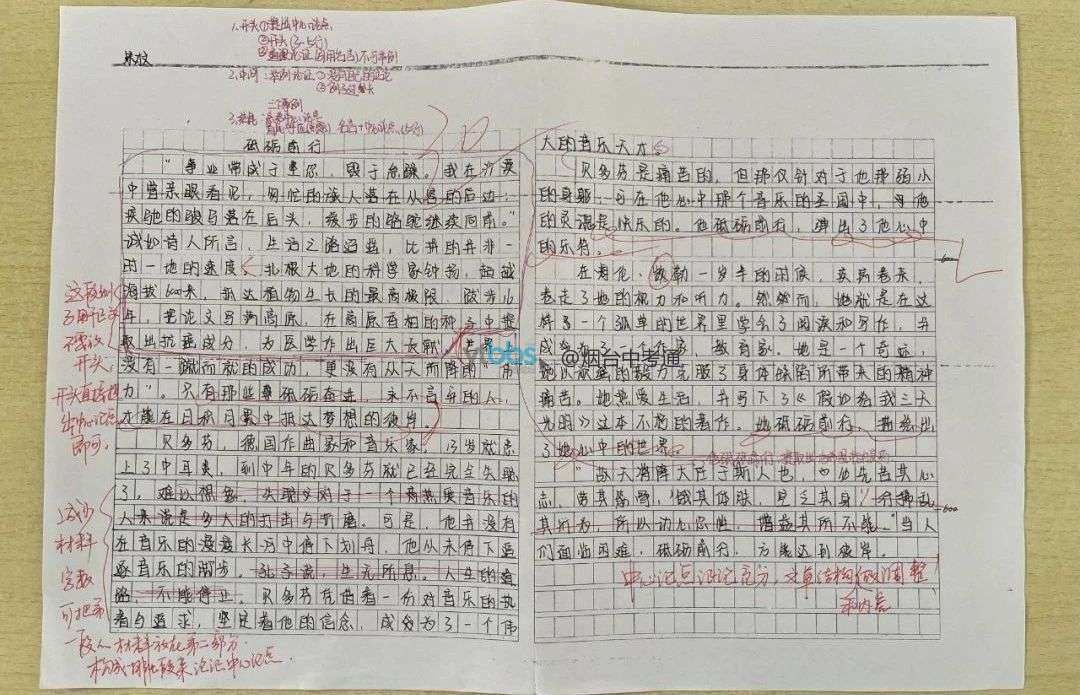 作文
1.开头①提出中心论点
②开头(3-5行)
2.中间:举例论证
三个事例
30
砥砺前行
“事业常成于坚忍,毁于急躁。我在沙漠
中曾亲眼看见,匆忙的旅人落在从容的后边,
疾驰的骏马落在后头,缓步的骆驼继续向前。”
诚如诗人所言,生活之路迢遥,比拼的并非一
时一地的速度。扎根大地的科学家钟扬,
海拔6000米,抵达植物生长的最高极限,跋涉16
年,把论文写满高原,在高原香柏的种子中提
取出抗癌成分,为医学作出巨大贡献,世界
没有一蹴而就的成功,更没有从天而降的“
力”。只有那些砥砺奋进、永不言弃的人,
才能在日积月累中抵达梦想的彼岸。
贝多芬,德国作曲家和音乐家,
上了中耳炎,到中年的贝多芬就已经完全失聪
了,难以想象,失聪
人来说是多大的打击与折磨。可是,他并没有
在音乐的漫漫长河中停下划舟,他从未停下追
逐音乐的脚步。孔子说,生无所息。人生的道
路,不能停止。贝多芬凭借着一份对音乐的执
着与追求,坚定着他的信念,成为了一个伟
大的音乐天才。
贝多芬是痛苦的,但那仅针对于他那弱小
的身躯,可在他心中那个音乐的圣国中,
的灵魂是快乐的。他砥砺前行,弹出了他心中
的乐符。
在海伦·凯勒一岁半的时候,疾病卷来,
卷走了她的视力和听力。然而,她就是在这
样一个孤单的世界里学会了阅读和写作,并
成为了一个作家,教育家。她是一个奇迹,
她以顽强的毅力克服了身体缺陷所带来的精神
痛苦。她热爱生活,并写下了《假如给我三天
光明》这本不朽的著作。她砥砺前行,描绘出
了她心中的世界。
“故天将降大任于斯人也,必先苦其心
志,劳其筋骨,饿其体肤,空乏其身,行拂乱
其所为,所以动心忍性,增益其所不能。”当人
们面临困难,砥砺前行,方能达到彼岸。
600
800
不需放
开头,
开头直接提
出中心论点
即可。
减少
材料
字数
可把第
一段人材料放在第二部分
构成排比段来论证中心论点
中心论点论证充分,文章结构做调整
yibbs
@烟台中考通